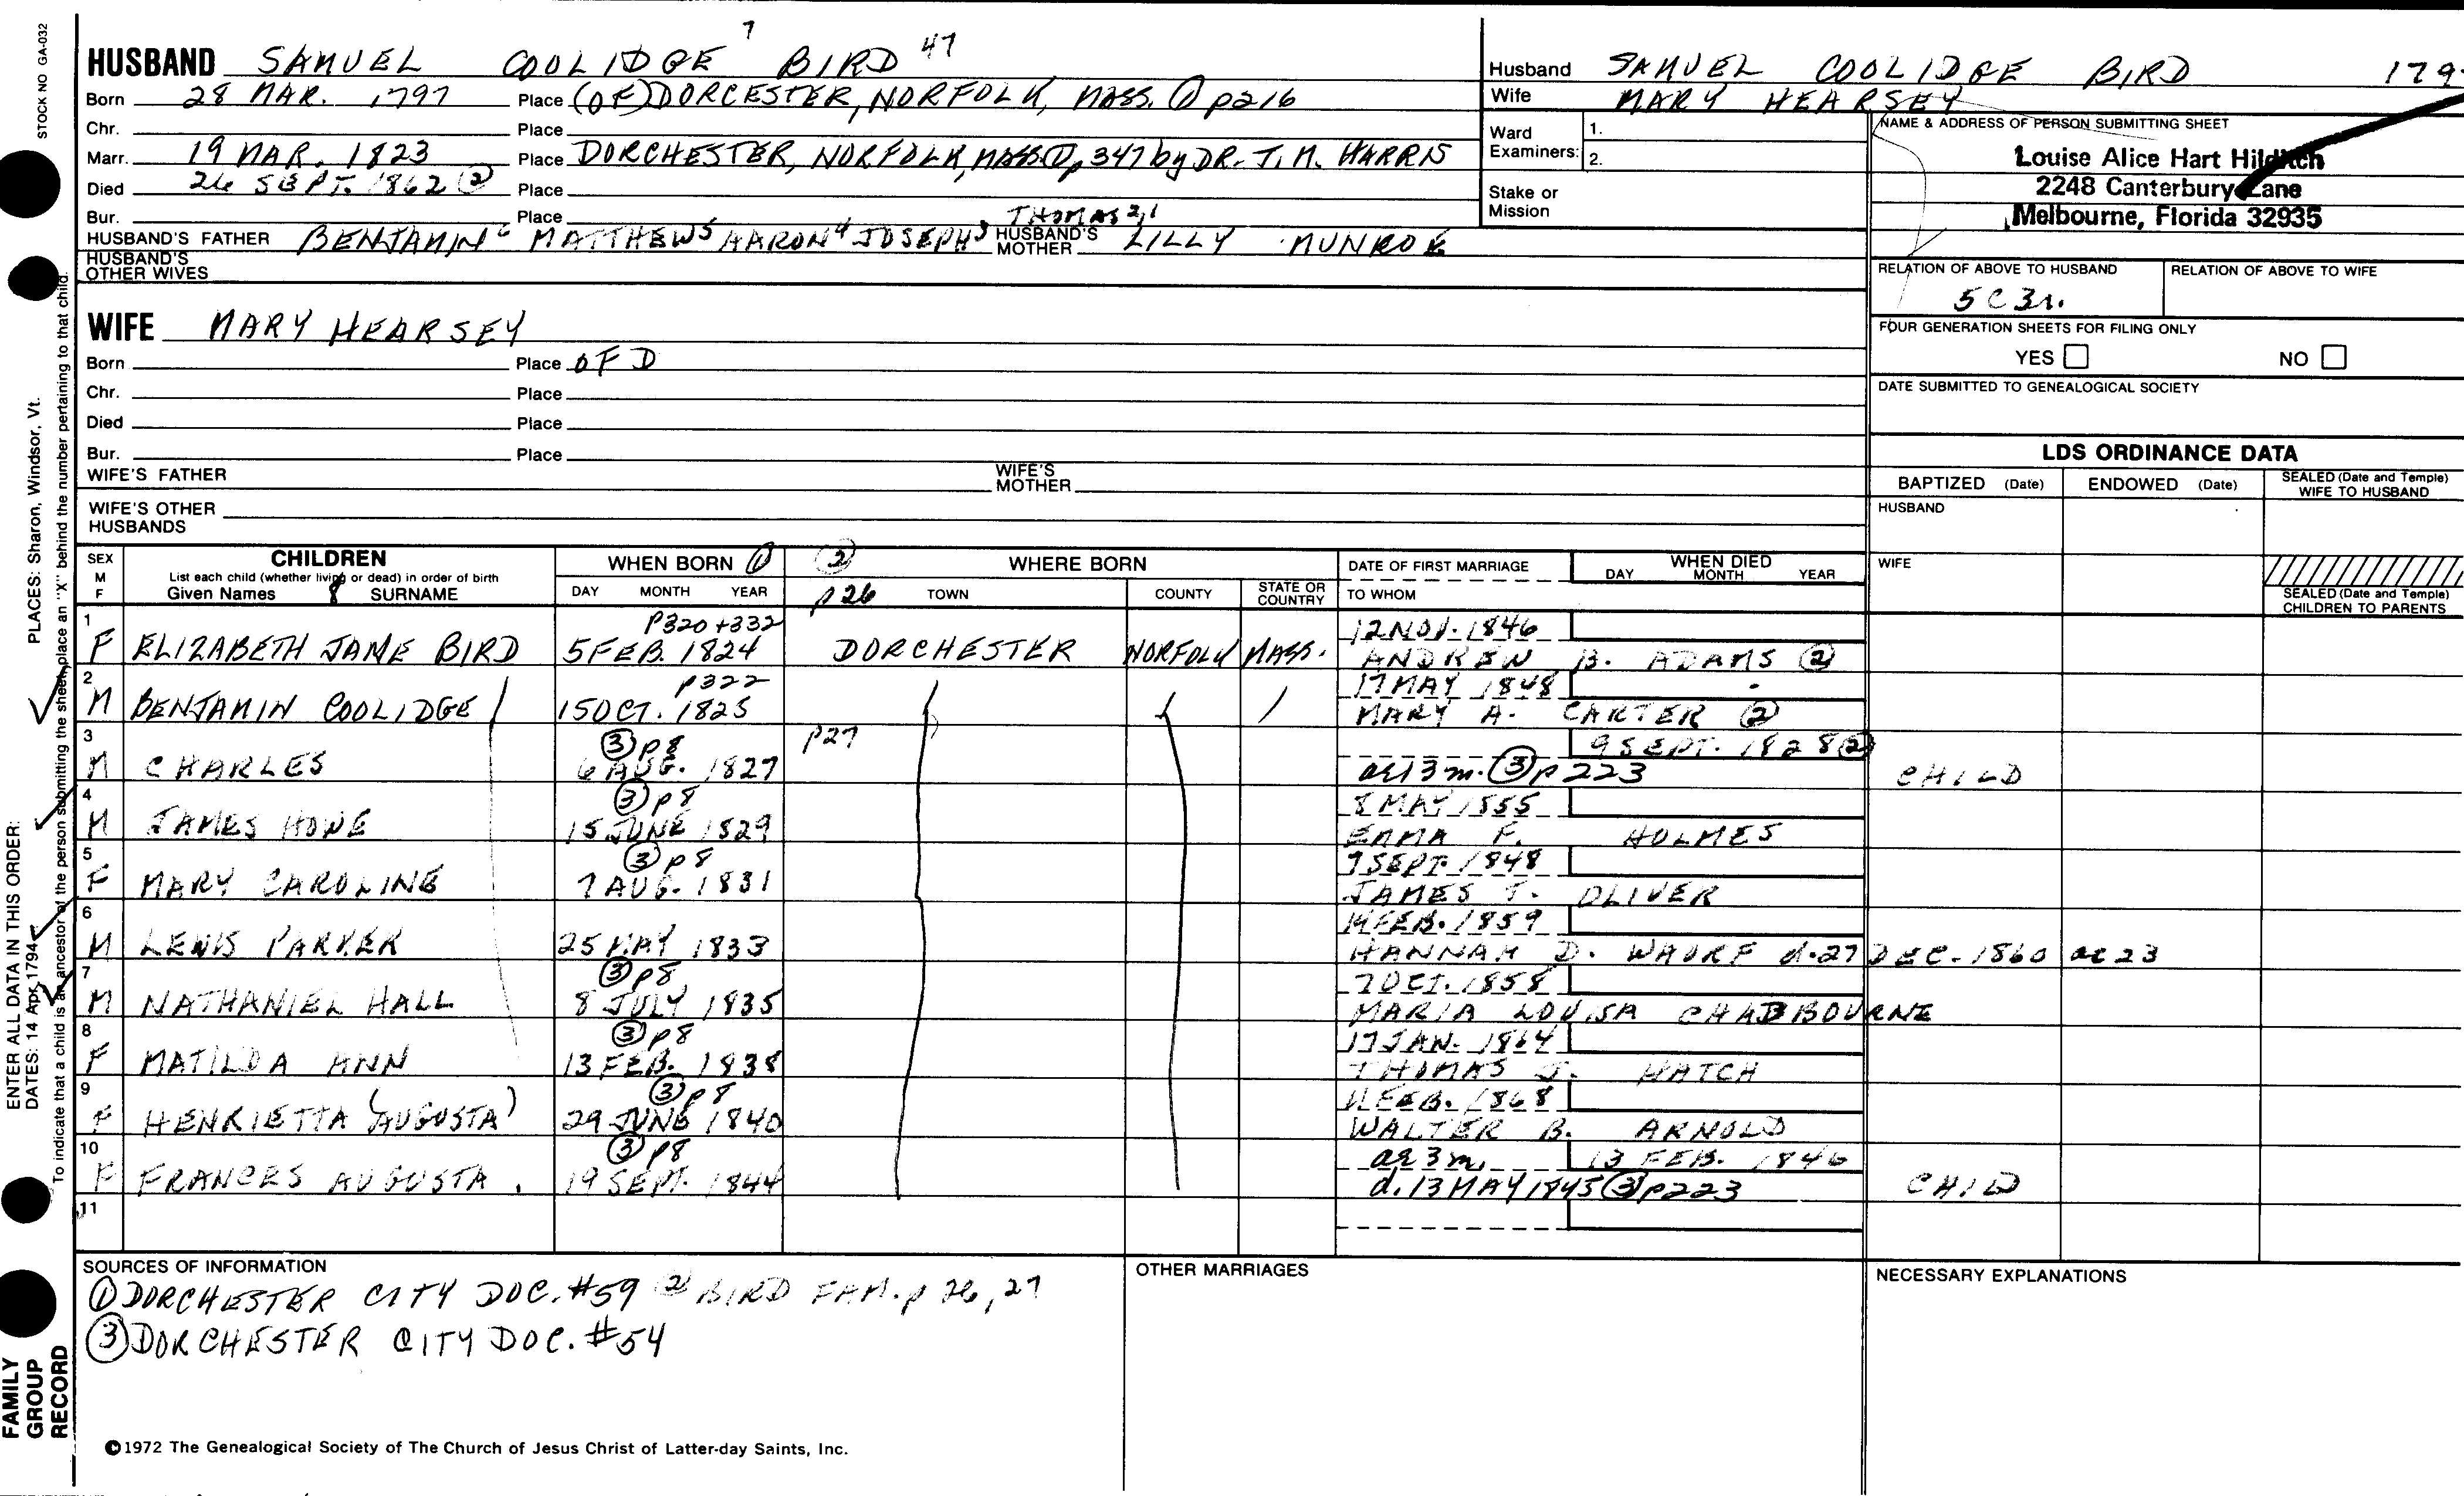 STOCK NO GA-032
7
HUSBAND SAMUEL COOLIDGE BIRD 47
Born 28 MAR. 1797 Place (OF) DORCESTER, NORFOLK, MASS. ① p216
Chr. Place
Marr. 19 MAR. 1823 Place DORCHESTER, NORFOLK, MASS. ① p 347 by DR. T. M. HARRIS
Died 26 SEPT. 1862 ② Place
Bur. Place THOMAS 2,1
HUSBAND'S FATHER BENJAMIN 6 MATTHEW 5 AARON 4 JOSEPH 3 HUSBAND'S MOTHER LILLY MUNROE
HUSBAND'S OTHER WIVES
WIFE MARY HEARSEY
Born Place OF D
Chr. Place
Died Place
Bur. Place
WIFE'S FATHER WIFE'S MOTHER
WIFE'S OTHER HUSBANDS
Husband SAMUEL COOLIDGE BIRD 179
Wife MARY HEARSEY
Ward Examiners: 1.
2.
Stake or Mission
NAME & ADDRESS OF PERSON SUBMITTING SHEET
Louise Alice Hart Hilditch
2248 Canterbury Lane
Melbourne, Florida 32935
RELATION OF ABOVE TO HUSBAND RELATION OF ABOVE TO WIFE
5 C 3 r.
FOUR GENERATION SHEETS FOR FILING ONLY
YES NO
DATE SUBMITTED TO GENEALOGICAL SOCIETY
LDS ORDINANCE DATA
BAPTIZED (Date) ENDOWED (Date) SEALED (Date and Temple) WIFE TO HUSBAND
HUSBAND
WIFE
SEALED (Date and Temple) CHILDREN TO PARENTS
SEX M F
CHILDREN
List each child (whether living or dead) in order of birth
Given Names 8 SURNAME
WHEN BORN ①
DAY MONTH YEAR
② p 26
WHERE BORN
TOWN COUNTY STATE OR COUNTRY
DATE OF FIRST MARRIAGE
TO WHOM
WHEN DIED
DAY MONTH YEAR
1 P320+332 12 NOV. 1846
F ELIZABETH JANE BIRD 5 FEB. 1824 DORCHESTER NORFOLK MASS. ANDREW B. ADAMS ②
2 p322 17 MAY 1848
M BENJAMIN COOLIDGE / 15 OCT. 1825 MARY A. CARTER ②
3 ③ p8 p27 9 SEPT. 1828 ②
M CHARLES 6 AUG. 1827 ae 13 m. ③ p 223 CHILD
4 ③ p8 8 MAY 1855
M JAMES HOWE 15 JUNE 1829 EMMA F. HOLMES
5 ③ p8 7 SEPT. 1848
F MARY CAROLINE 7 AUG. 1831 JAMES T. OLIVER
6 14 FEB. 1859
M LEWIS PARKER 25 MAY 1833 HANNAH D. d. 27 DEC. 1860 ae 23
7 ③ p8 7 OCT. 1858
M NATHANIEL HALL 8 JULY 1835 MARIA LOUISA CHADBOURNE
8 ③ p8 17 JAN. 1864
F MATILDA ANN 13 FEB. 1838 THOMAS J. HATCH
9 ③ p8 11 FEB. 1868
F HENRIETTA (AUGUSTA) 29 JUNE 1840 WALTER B. ARNOLD
10 ③ p8 ae 3 m. 13 FEB. 1846
F FRANCES AUGUSTA. 19 SEPT. 1844 d. 13 MAY 1845 ③ p223 CHILD
11
SOURCES OF INFORMATION
① DORCHESTER CITY DOC. #59 ② BIRD FAM. p 26, 27
③ DORCHESTER CITY DOC. #54
OTHER MARRIAGES
NECESSARY EXPLANATIONS
©1972 The Genealogical Society of The Church of Jesus Christ of Latter-day Saints, Inc.
FAMILY GROUP RECORD
ENTER ALL DATA IN THIS ORDER:
DATES: 14 Apr. 1794
PLACES: Sharon, Windsor, Vt.
To indicate that a child is an ancestor of the person submitting the sheet, place an "X" behind the number pertaining to that child.